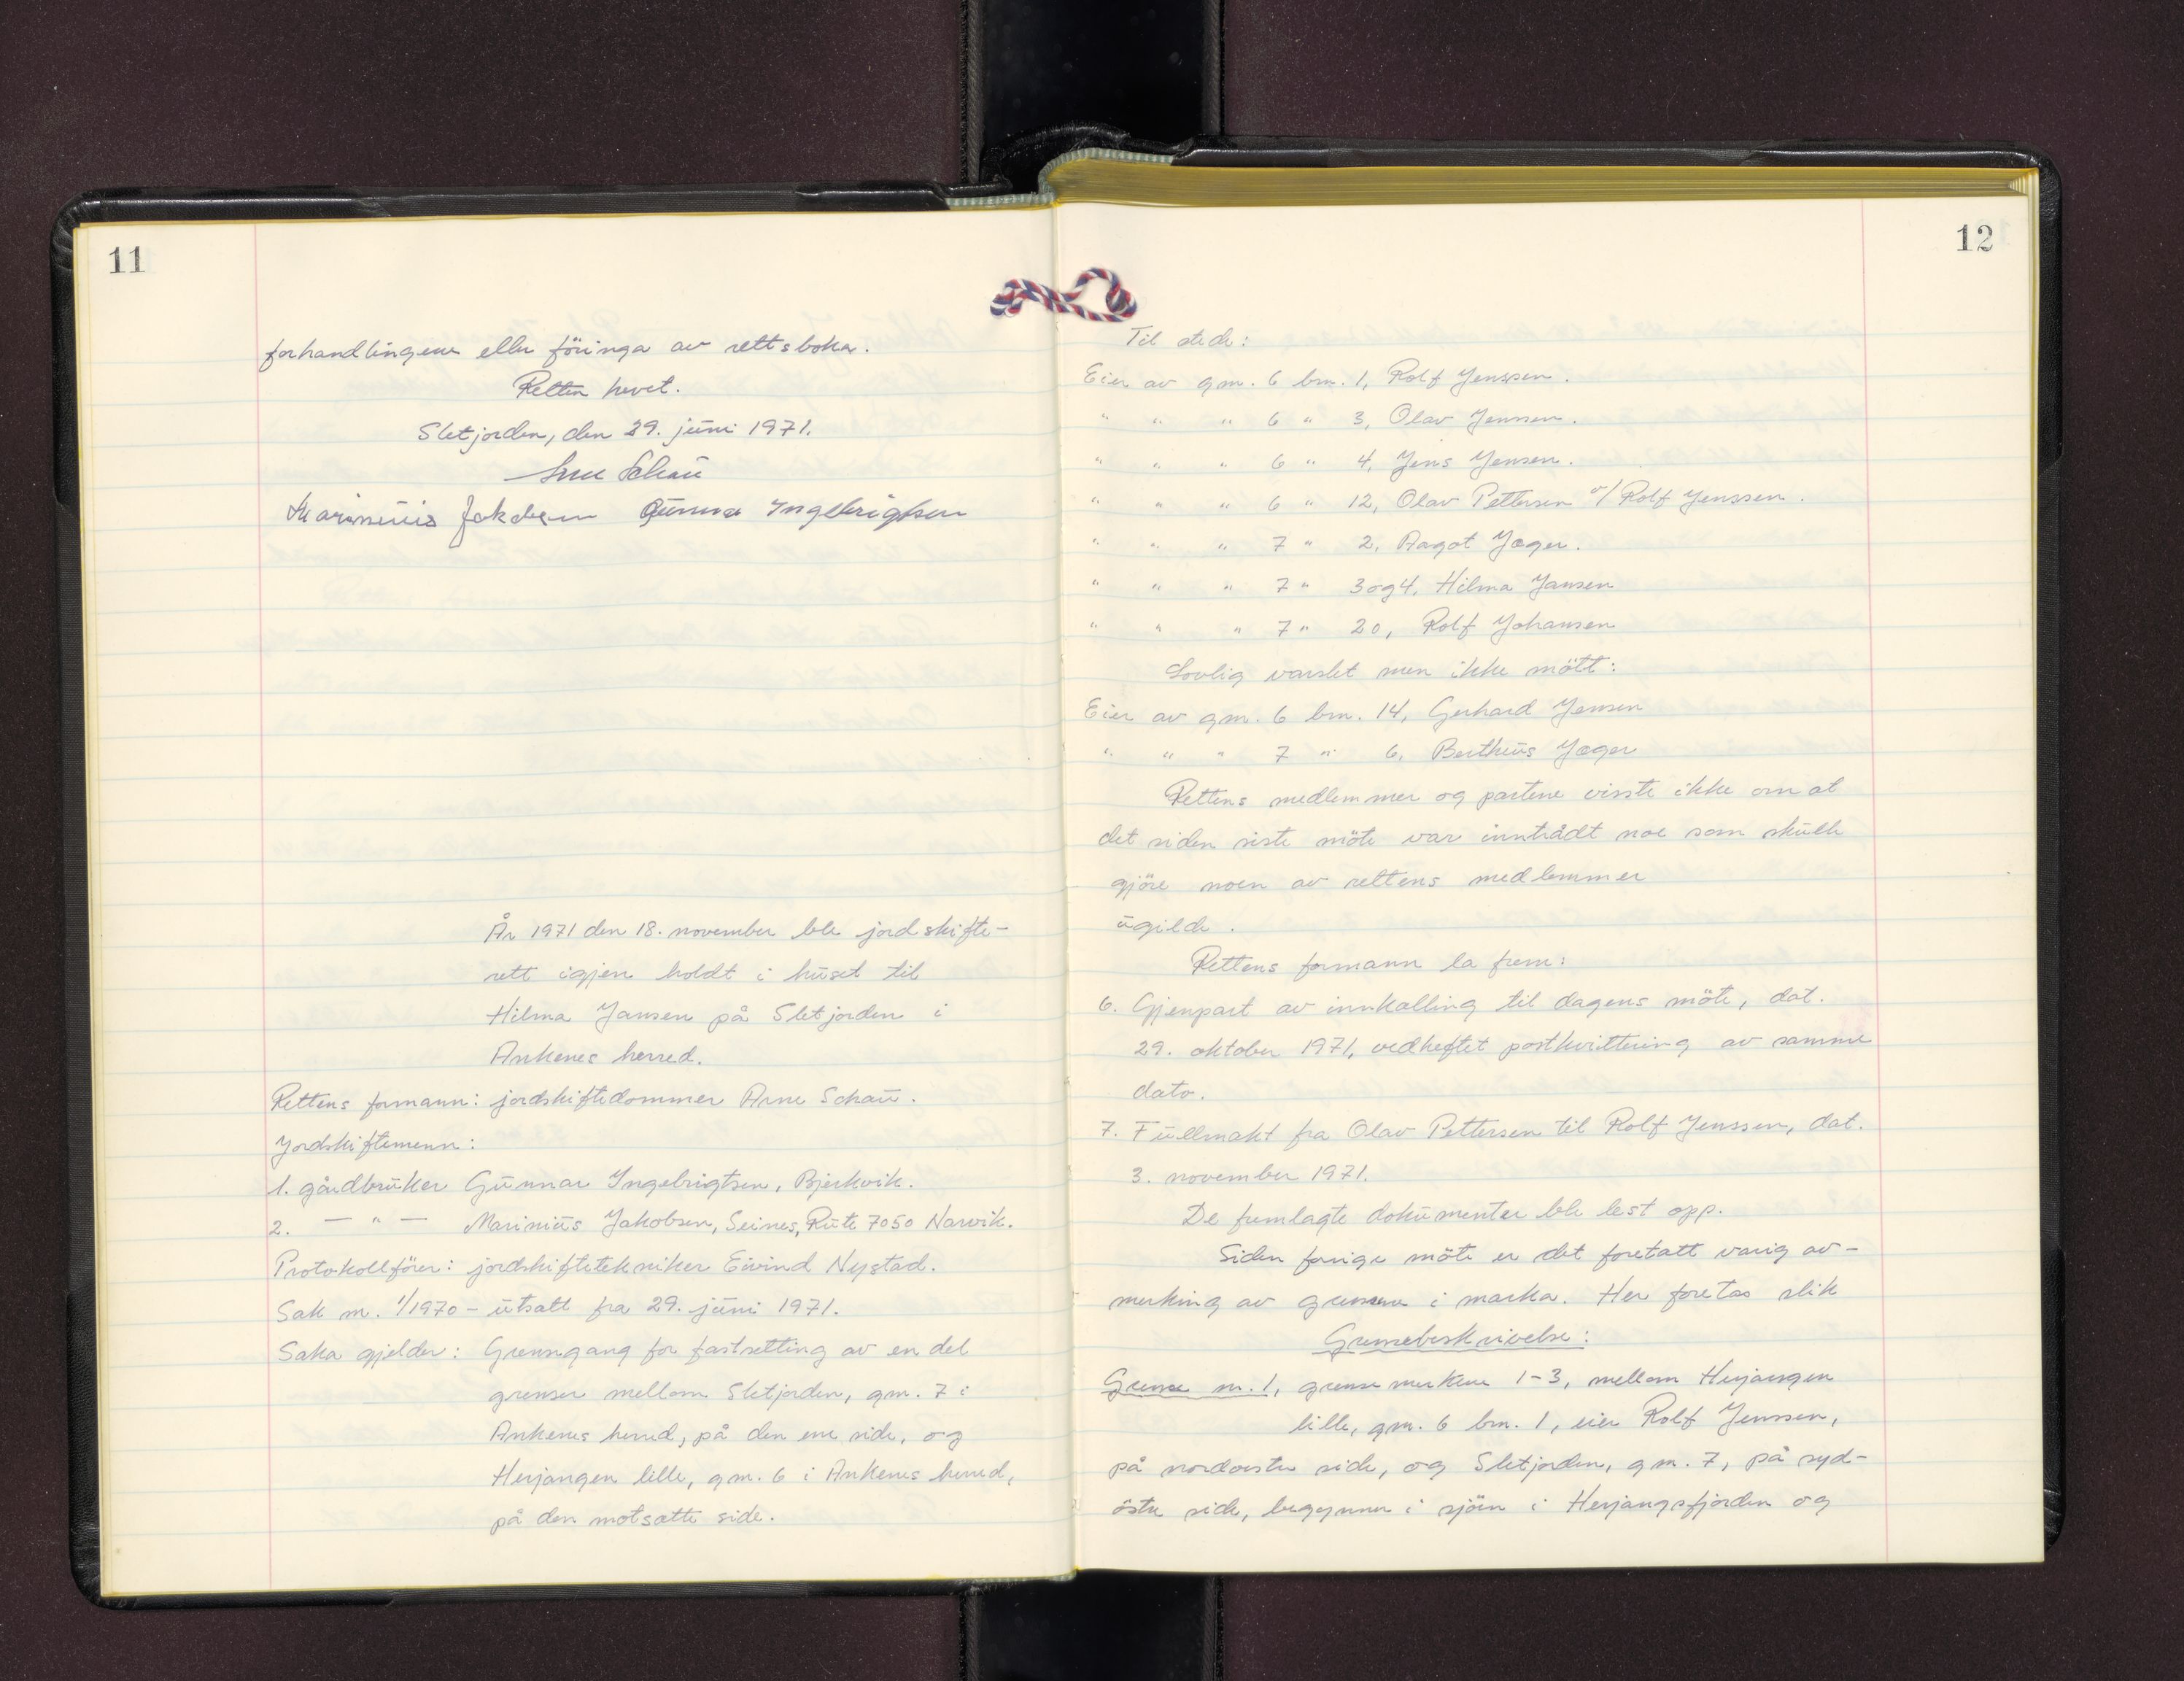 11
forhandlingene eller föringa av rettsboka.
Retten hevet.
Sletjorden, den 29. juni 1971.
Arne Schau
Marinius Jakobsen Gunnar Ingebrigtsen
År 1971 den 18. november ble jordskifte-
rett igjen holdt i huset til
Hilma Jansen på Sletjorden i
Ankenes herred.
Rettens formann: jordskiftedommer Arne Schau.
Jordskiftemenn:
1. gårdbruker Gunnar Ingebrigtsen, Bjerkvik.
2. — " — Marinius Jakobsen, Seines, Rute 7050 Narvik.
Protokollförer: jordskiftetekniker Eivind Nystad.
Sak nr. 1/1970 - utsatt fra 29. juni 1971.
Saka gjelder: Grensegang for fastsetting av en del
grenser mellom Sletjorden, gnr. 7 i
Ankenes herred, på den ene side, og
Herjangen lille, gnr. 6 i Ankenes herred,
på den motsatte side.
12
Til stede:
Eier av gnr. 6 bnr. 1, Rolf Jenssen.
" " " 6 " 3, Olav Jenssen.
" " " 6 " 4, Jens Jensen.
" " " 6 " 12, Olav Pettersen v/ Rolf Jenssen.
" " " 7 " 2, Aagot Jæger.
" " " 7 " 3 og 4, Hilma Jansen
" " " 7 " 20, Rolf Johansen
Lovlig varslet men ikke mött:
Eier av gnr. 6 bnr. 14, Gerhard Jensen
" " " 7 " 6, Bertheus Jæger
Rettens medlemmer og partene visste ikke om at
det siden siste möte var inntrådt noe som skulle
gjöre noen av rettens medlemmer
ugilde.
Rettens formann la frem:
6. Gjenpart av innkalling til dagens möte, dat.
29. oktober 1971, vedheftet postkvittering av samme
dato.
7. Fullmakt fra Olav Pettersen til Rolf Jenssen, dat.
3. november 1971.
De fremlagte dokumenter ble lest opp.
Siden forrige möte er det foretatt varig av-
merking av grensene i marka. Her foretas slik
Grensebeskrivelse:
Grense nr. 1, grensemerkene 1-3, mellom Herjangen
lille, gnr. 6 bnr. 1, eier Rolf Jenssen,
på nordvestre side, og Sletjorden, gnr. 7, på syd-
östre side, begynner i sjöen i Herjangsfjorden og